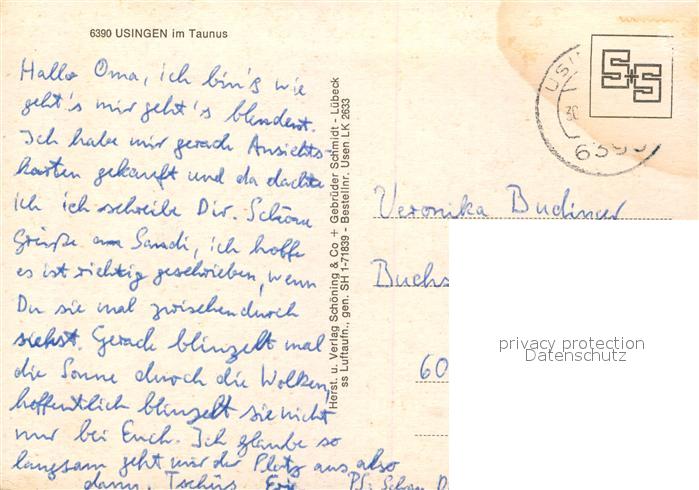 6390 USINGEN im Taunus
Hallo Oma, ich bin's wie
geht's mir geht's blendent.
Ich habe mir gerade Ansichts-
karten gekauft und da dachte
ich ich schreibe Dir. Schöne
Grüße an Sandi, ich hoffe
es ist richtig geschrieben, wenn
Du sie mal zwischendurch
siehst. Gerade blinzelt mal
die Sonne durch die Wolken,
hoffentlich blinzelt sie nicht
nur bei Euch. Ich glaube so
langsam geht mir der Platz aus also
dann, Tschüs PS: Schau
Herst. u. Verlag Schöning & Co + Gebrüder Schmidt - Lübeck
ss Luftaufn., gen. SH 1-71839 - Bestellnr. Usen LK 2633
S+S
USI
30
6390
Veronika Budiner
Buchs
60
privacy protection
Datenschutz